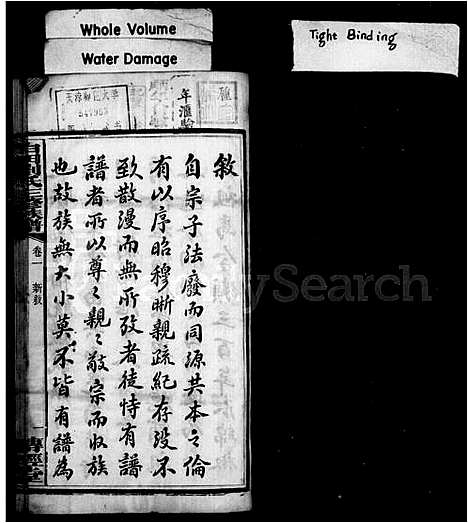 Whole Volume
Water Damage
Tight Binding
敘
自宗子法廢而同源共本之倫
有以序昭穆晰親疏紀存沒不
致散漫而無所攷者徒恃有譜
譜者所以尊々親々敬宗而收族
也故族無大小莫不皆有譜焉
劉氏三修族譜
卷一
新敘
一
傳經堂
FamilySearch